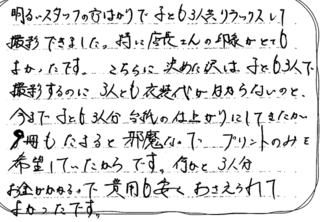 明るいスタッフの方ばかりで子ども3人共リラックスして
撮影できました。特に店長さんの印象がとても
よかったです。 こちらに決めた訳は、子ども3人で
撮影するのに3人とも衣装代がかからないのと、
今まで子ども3人分台紙の仕上がりにしてきたが
9冊もたまると邪魔なので プリントのみを
希望していたからです。何かと3人分
お金がかかるので費用も安くおさえられて
よかったです。